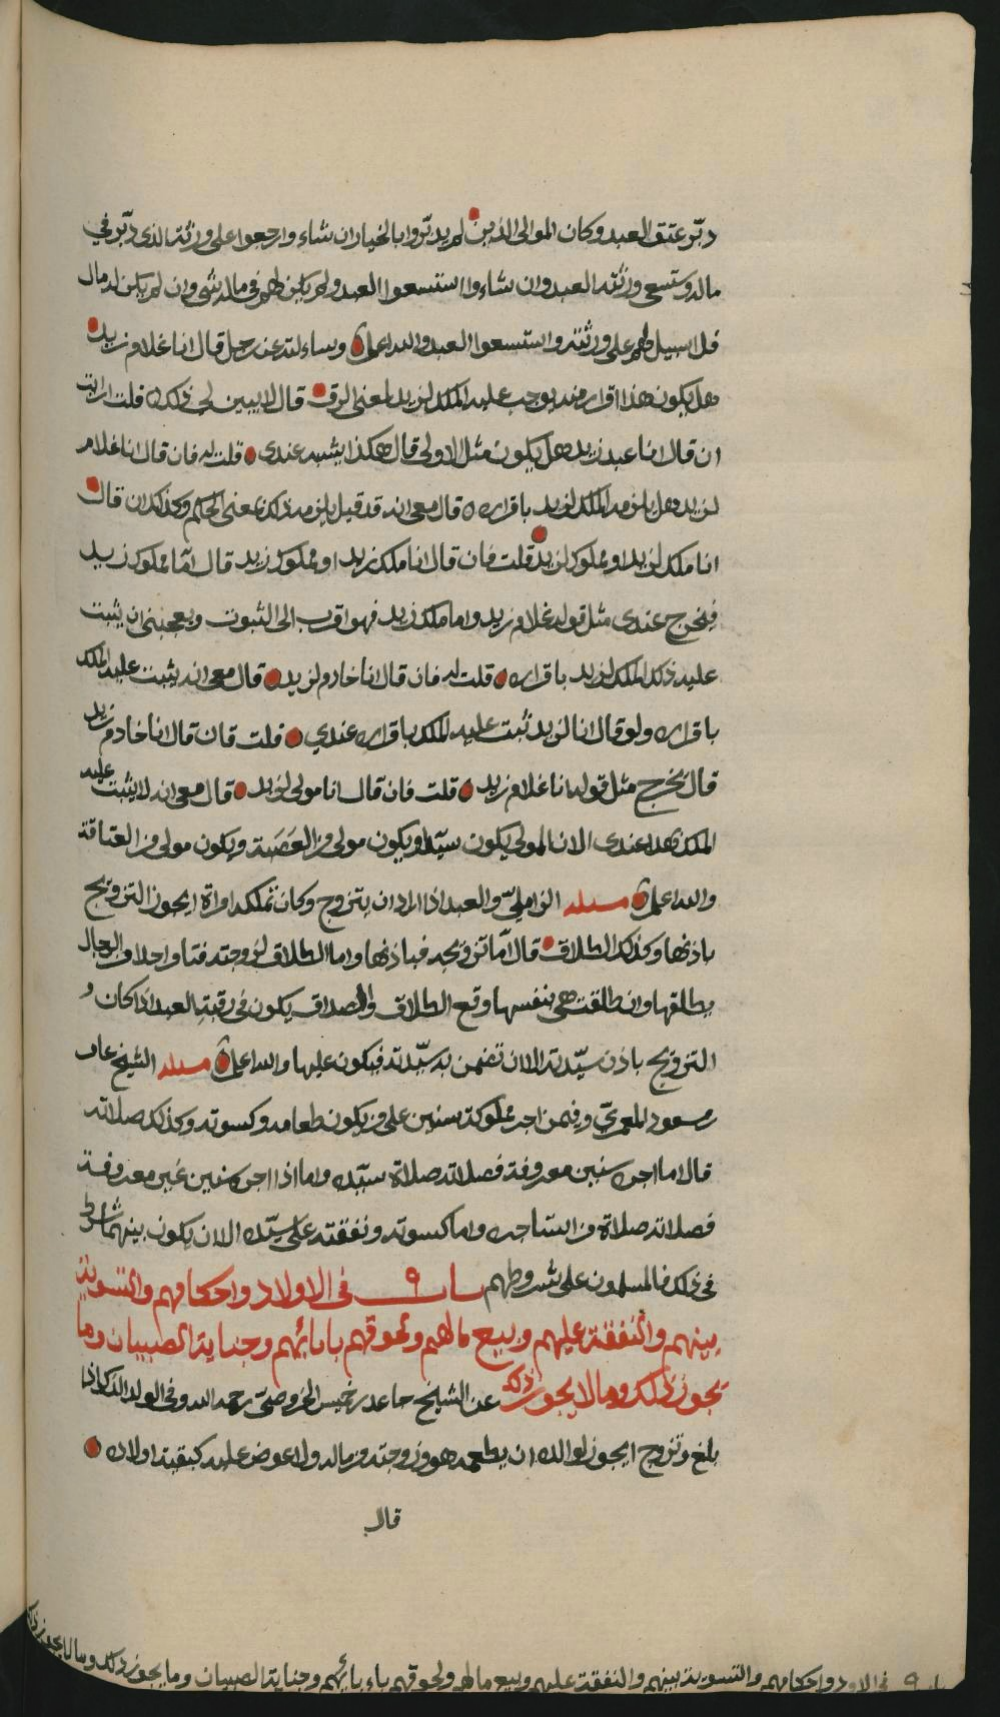 دبّر عتق العبد وكان الموالى الذين لم يدبّروا بالخيار ان شاء وارجعوا على ورثته الذى دبّر في
ماله وتسعى ورثته العبد وان شاء وا استسعوا العبد ولم يكن لهم في ماله شى وان لم يكن له مال
فلا سبيل لهم على ورثته واستسعوا العبد والله اعلم وساءلته عن رجل قال انا غلام زيد
هل يكون هذا اقرار منه يوجب عليه الملك لزيد لمعنى الرق قال لا يبين لي ذلك قلت ارايت
ان قال انا عبد زيد هل يكون مثل الاولى قال هكذا يشبه عندى قلت له فان قال انا غلام
لزيد هل يلزمه الملك لزيد باقراره قال معى انه قد قيل يلزمه ذلك بمعنى الحكم وكذلك ان قال
انا ملك لزيد او مملوك لزيد قلت فان قال انا ملك زيد او مملوك زيد قال امّا مملوك زيد
فيخرج عندى مثل قوله غلام زيد واما ملك زيد فهو اقرب الى الثبوت ويعجبنى ان يثبت
عليه ذلك الملك لزيد باقراره قلت له فان قال انا خادم لزيد قال معى انه يثبت عليه الملك
باقراره ولو قال انا لزيد ثبت عليه الملك باقراره عندي قلت فان قال انا خادم زيد
قال يخرج مثل قوله انا غلام زيد قلت فان قال انا مولى لزيد قال معى انه لا يثبت عليه
الملك بهذا عندى الا ان المولى يكون سيّدا ويكون مولى من العَصَبة ويكون مولى من العتاقة
والله اعلم مسئله الزاملىّ والعبد اذا اراد ان يتزوج وكان تملكه امراة ايجوز التزويج
باذنها وكذلك الطلاق قال امّا تزويجه فباذنها واما الطلاق لزوجته فتاء واجلا من الرجال
يطلقها وان طلقت هى بنفسها وقع الطلاق والصداق يكون في رقبة العبد اذا كان
التزويج باذن سيّدته الا ان تضمن به سيّدته فيكون عليها والله اعلم مسئله الشيخ عامر
بن مسعود المعمريّ وفيمن اجر مملوكه سنين على من يكون طعامه وكسوته وكذلك صلاته
قال اما اجره سنين معروفة فصلاته صلاة سيّده واما اذا اجره سنين غير معروفة
فصلاته صلاة من استاجره واما كسوته ونفقته على سيّده الا ان يكون بينهما شرط
في ذلك فالمسلمون على شروطهم باب ٩ في الاولاد واحكامهم والتسوية
بينهم والنفقة عليهم وبيع مالهم ولحوقهم بابائهم وجناية الصبيان وما
يجوز من ذلك وما لا يجوز ذلك عن الشيخ جاعد بن خميس الخروصىّ رحمه الله وفي الولد الذكر اذا
بلغ وتزوج ايجوز لوالده ان يطعمه هو وزوجته من ماله ولا عوض عليه كبقية اولاده
قال
باب ٩ في الاولاد واحكامهم والتسوية بينهم والنفقة عليهم وبيع مالهم ولحوقهم باءبائهم وجناية الصبيان وما يجوز من ذلك وما لا يجوز من ذلك